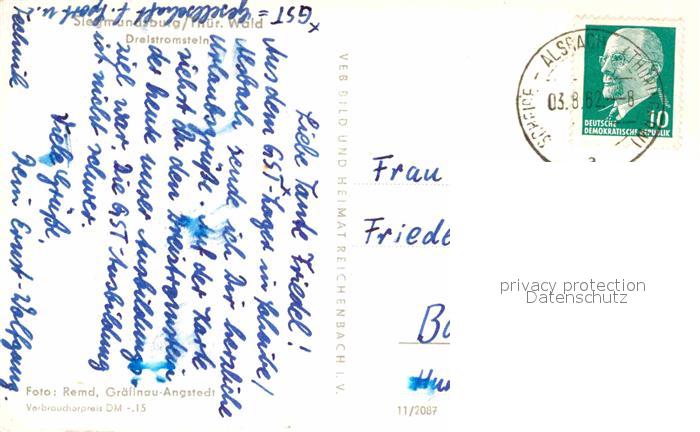 Siegmundsburg/Thür. Wald
Dreistromstein
x GST = Gesellschaft f. Sport u.
Technik
Liebe Tante Friedel!
Aus dem GST-x Lager in Scheibe/
Alsbach sende ich Dir herzliche
Urlaubsgrüße. Auf der Karte
siehst Du den Dreistromstein,
der heute unser Ausbildungs-
ziel war. Die GST-Ausbildung
ist nicht schwer.
Viele Grüße,
Dein Ernst-Wolfgang.
Foto: Remd, Gräfinau-Angstedt
Verbraucherpreis DM -.15
VEB BILD UND HEIMAT REICHENBACH I. V.
11/2087
SCHEIBE - ALSBACH
03.8.62 - 8
a
10
DEUTSCHE
DEMOKRATISCHE REPUBLIK
Frau
Friede
Ba
privacy protection
Datenschutz